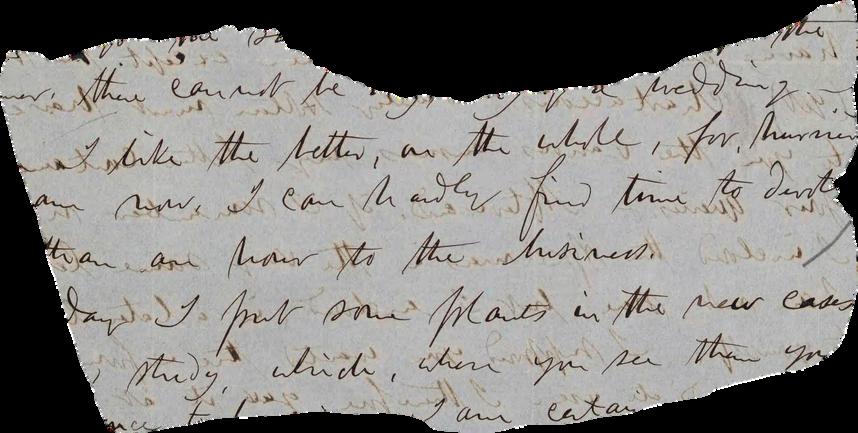 you see the
there cannot be wedding.
I like the better, on the whole, for, hurried
am now, I can hardly find time to devote
than an hour to the business.
day I put some plants in the new cases
study, which, when you see them you
I am certain